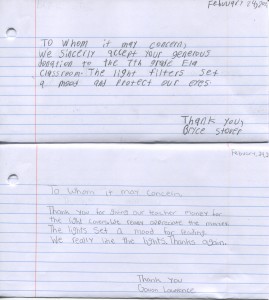 February 24, 20
TO Whom it may concern,
We Sincerly accept your generous
donation to the 7th grade Ela
Classroom. The light filters Set
a mood and protect our eyes.
Thank you,
Bryce Stover
February 24, 2
To Whom it may concern
Thank you for giving our teacher money for
the light covers. We really appreciate the
The lights Set a mood for reading.
We really like the lights. Thanks again.
Thank You
Lawrence